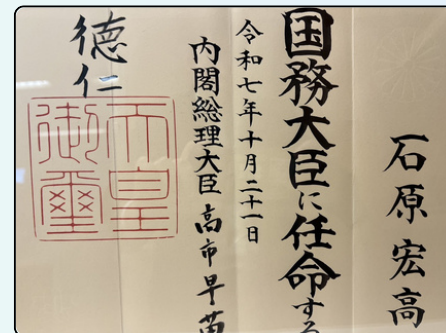 石原宏高
国務大臣に任命する
令和七年十月二十一日
内閣総理大臣 高市早苗
徳仁
天皇
御璽